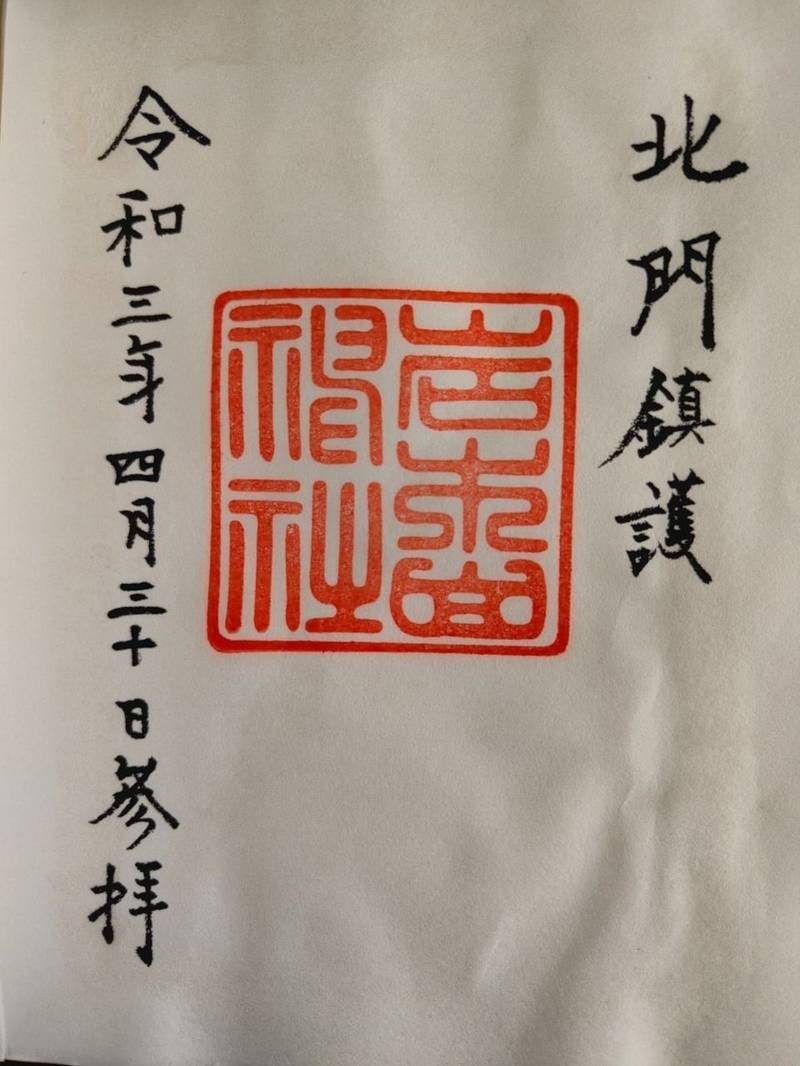 北門鎮護
岩木山
神社
令和三年四月三十日参拝